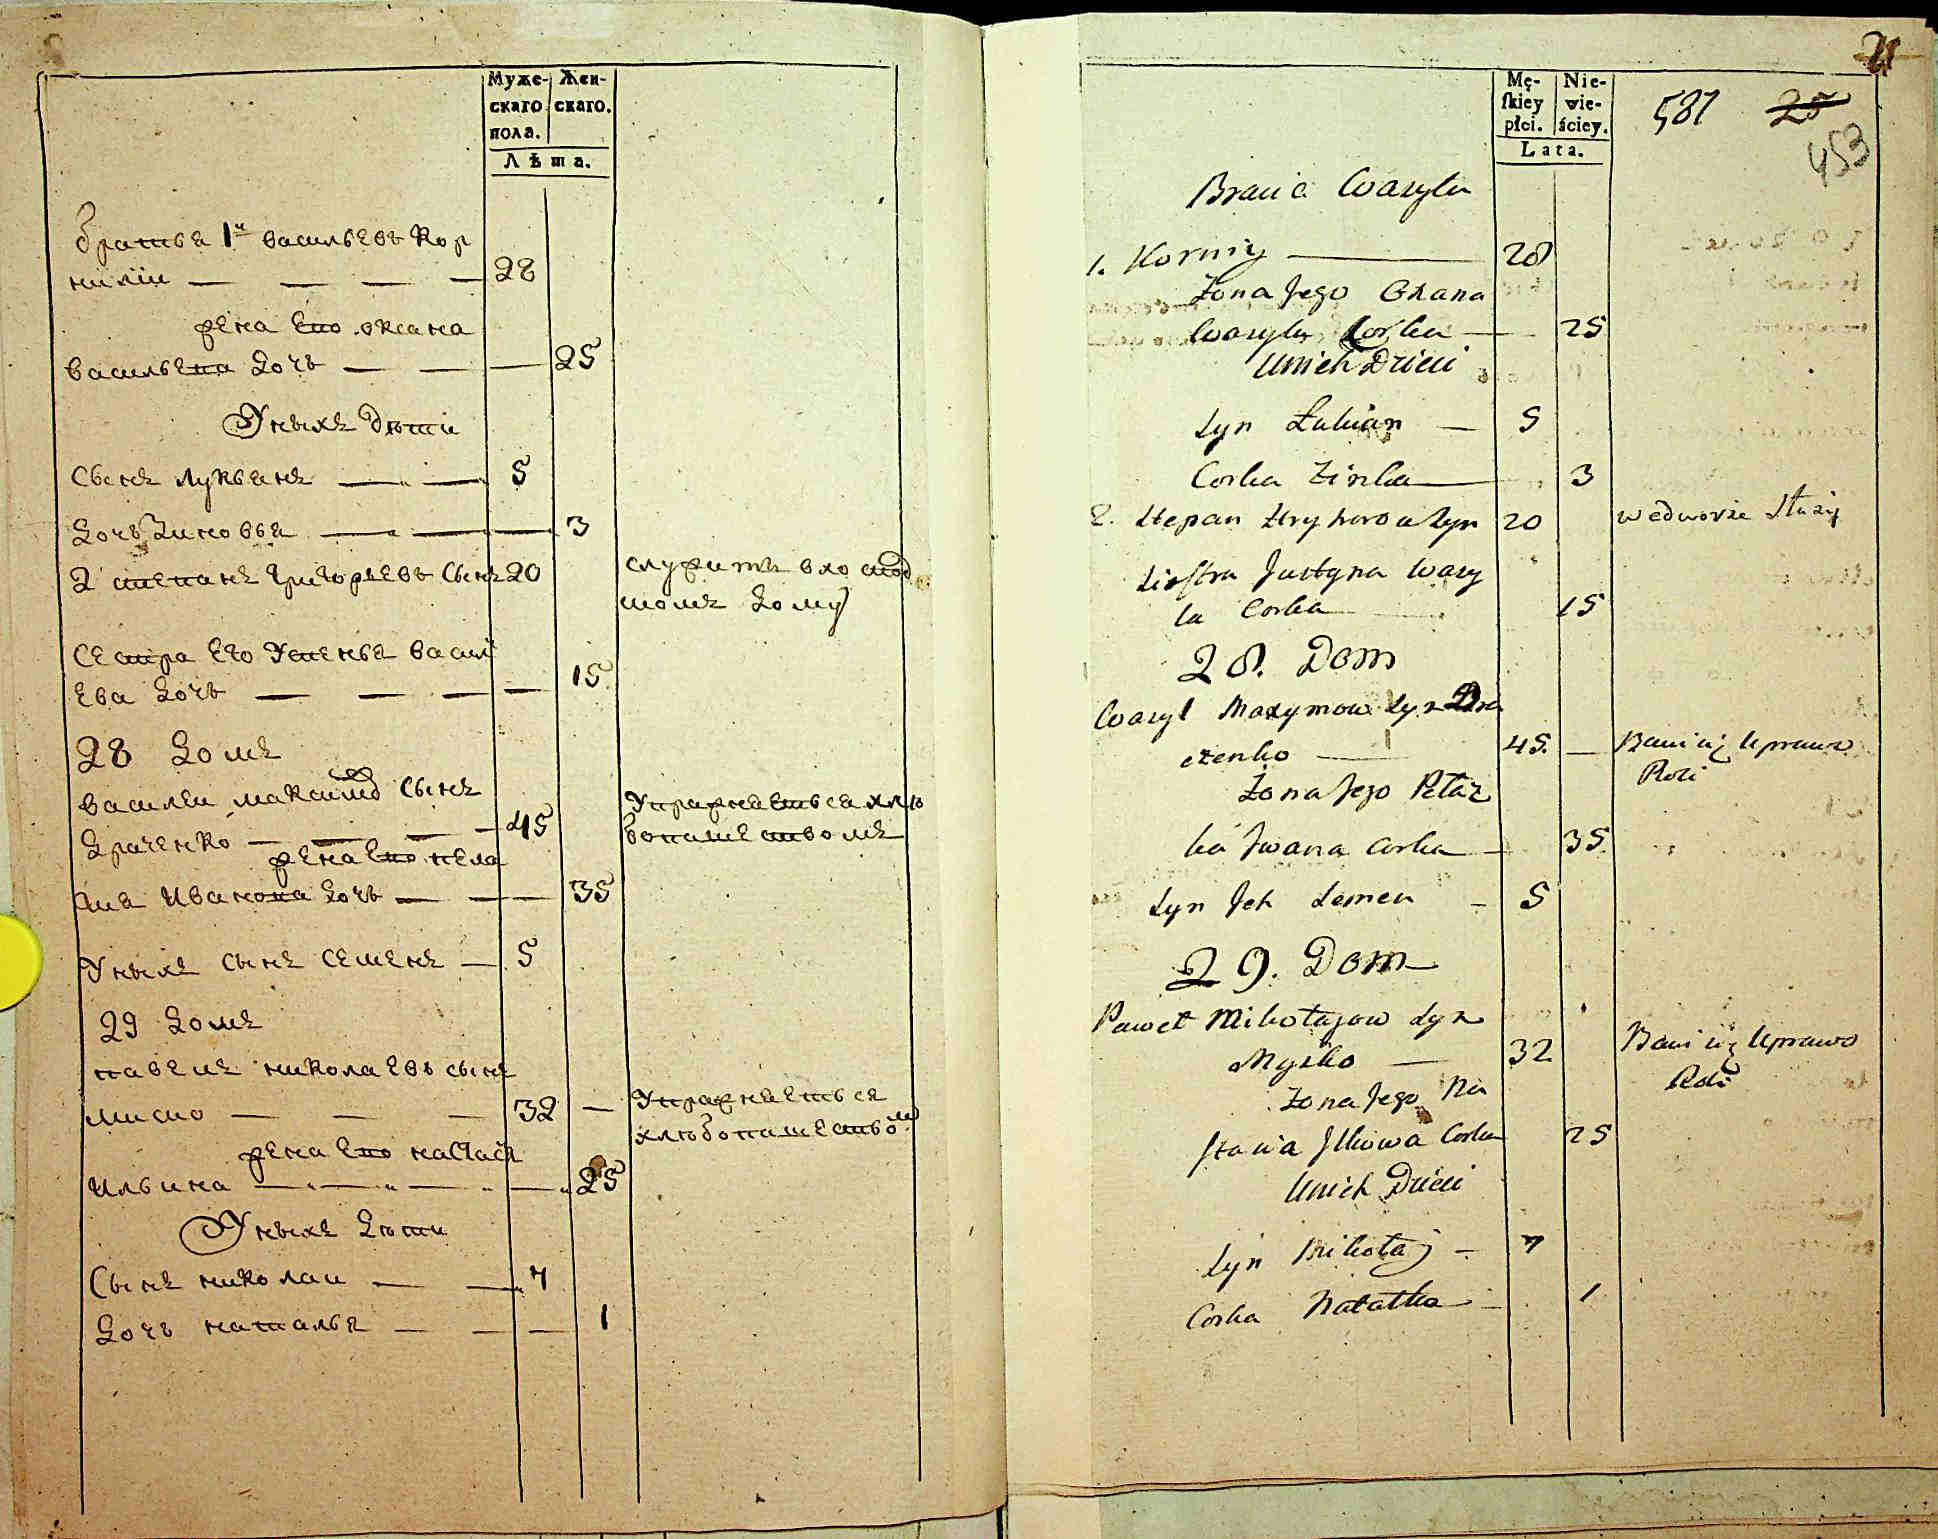 Муже-
скаго
пола.
Жен-
скаго.
Лѣта.
братья 1й васильевъ кор
нилiи — — — — 28
жена его оксана
васильева дочь — — — 25
У ныхъ дѣти
Сынъ лукьянъ — — 5
дочь Зиновья — — — 3
2 степанъ григорьевъ Сынъ 20
служитъ в господ
томъ дому
Сестра его Устенья васил
ева дочь — — — — 15
28 домъ
василеи максимовъ Сынъ
драченко — — — — 45
Упражняется хлѣ
бопашествомъ
жена его пела
гия Иванова дочь — — — 35
У ныхъ сынъ семенъ — 5
29 домъ
павелъ николаевъ сынъ
миско — — — 32 —
Упражняется
хлѣбопашество м
жена его настася
Ильина — — — — 25
У ныхъ дѣти
Сынъ николаи — — 7
дочь наталья — — — 1
21
Mę-
ſkiey
płci.
Nie-
wie-
ściey.
Lata.
587 25
453
Bracia Wasyla
1. Korniy — 28
Żona Jego Oxana
Wasyla Corka — 25
U nich Dzieci
Syn Łukian — 5
Corka Zinka — 3
2. Stepan Hryhorow Syn 20 we dworze Służy
Siostra Justyna Wasy
la Corka — 15
28. Dom
Wasyl Maxymow Syn Dra
czenko — 45. — Bawi się Uprawo
Roli
Żona Jego Pełaz
ka Jwana Corka — 35.
Syn Ich Semen — 5
29. Dom
Paweł Mikołajow Syn
Mysko — 32 Bawi się Uprawo
Roli
Żona Jego Na
stazia Jlkowa Corka 25
U nich Dzieci
Syn Mikołaj — 7
Corka Natałka — 1